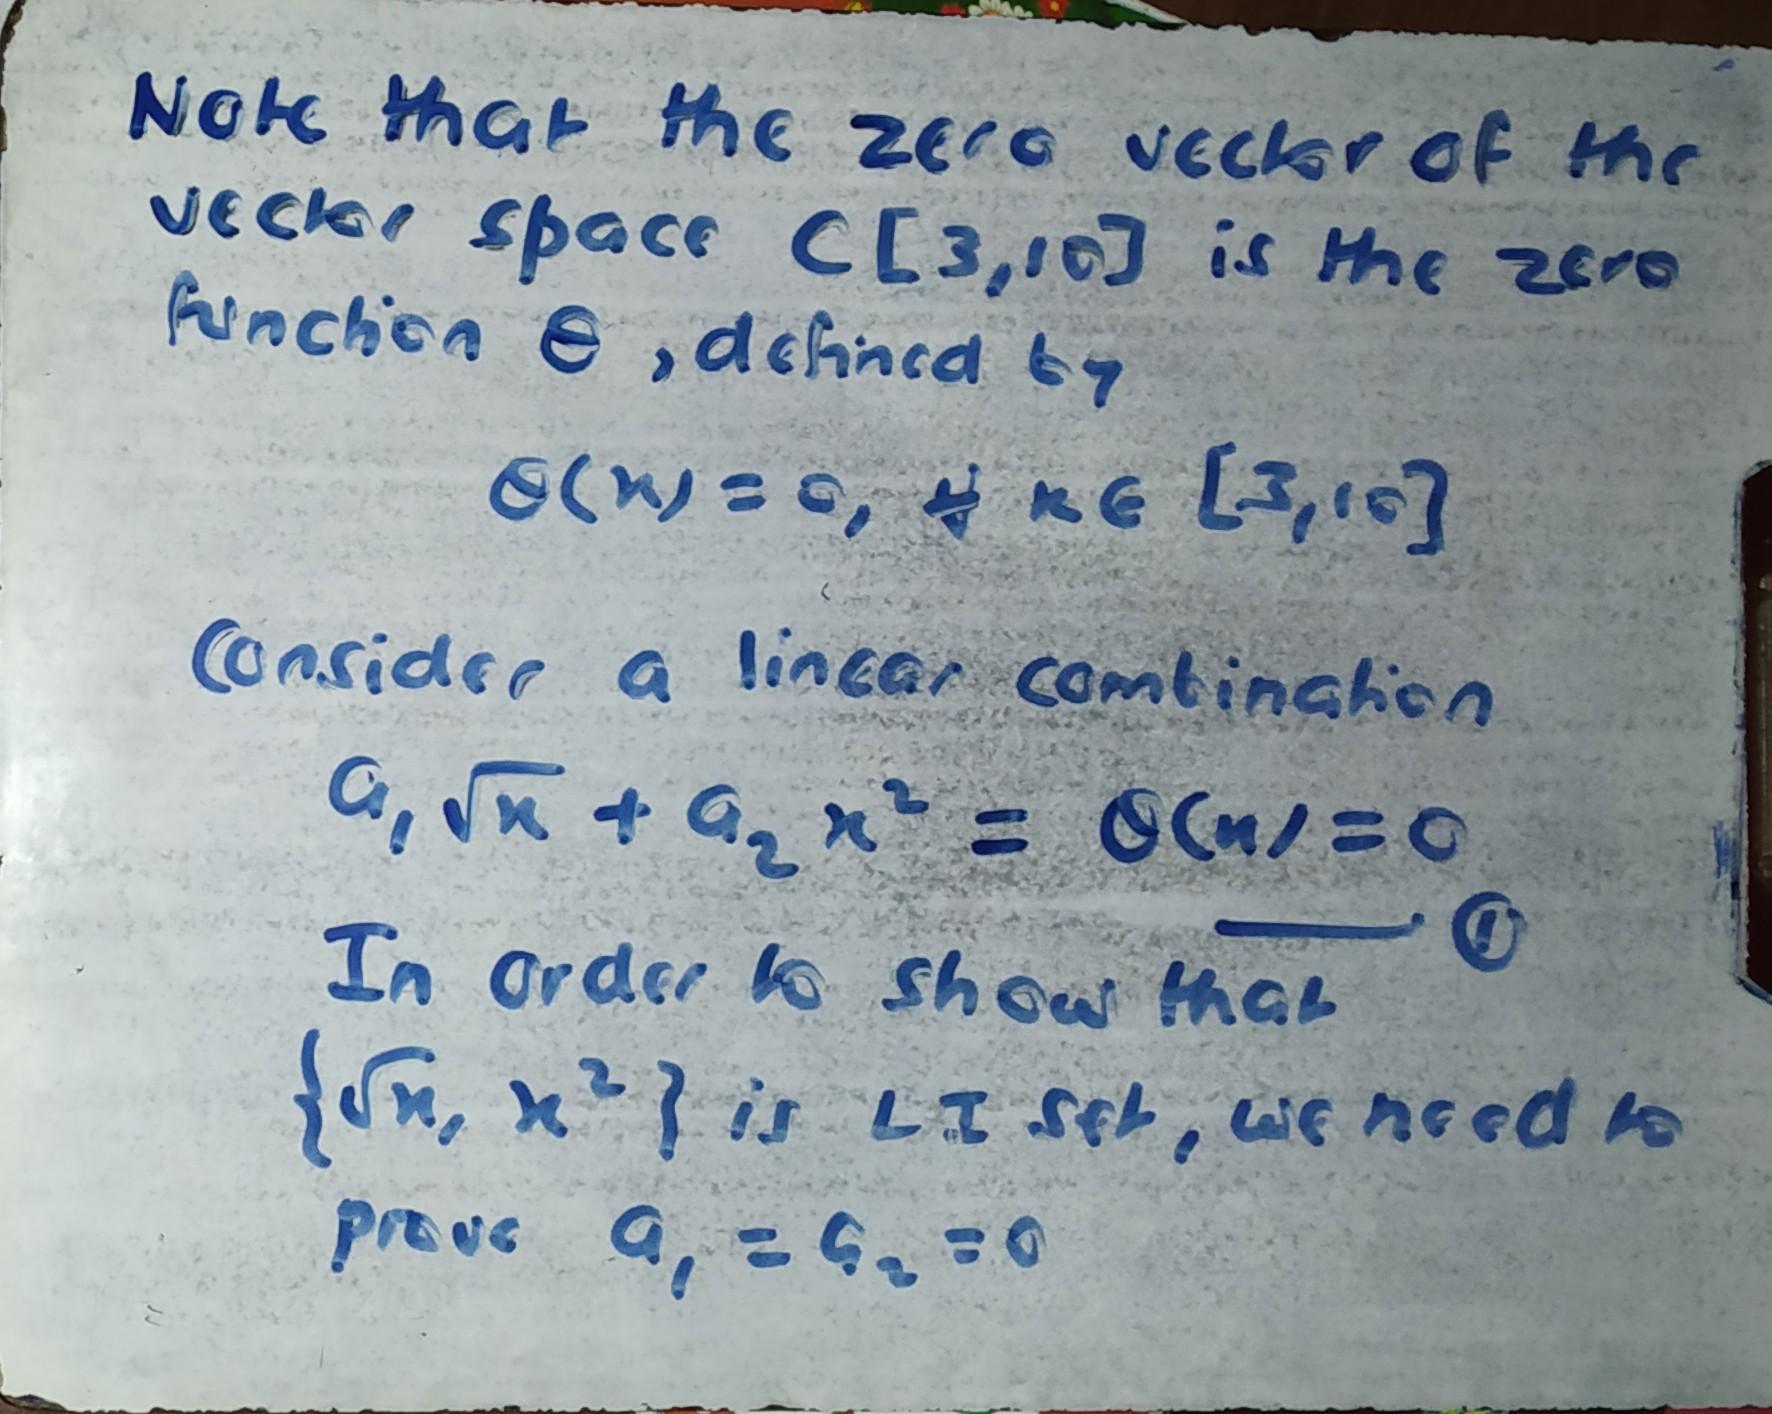 Note that the zero vector of the
vector space C[3,10] is the zero
function θ, defined by
θ(x) = 0, ∀ x ∈ [3,10]
Consider a linear combination
a₁√x + a₂x² = θ(x) = 0
—— ①
In order to show that
{√x, x²} is LI set, we need to
prove a₁ = a₂ = 0